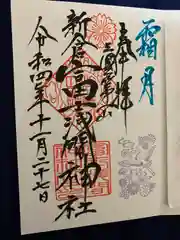 霜月
奉拝
三國第一山
新倉富士浅間神社
令和四年十一月二十七日